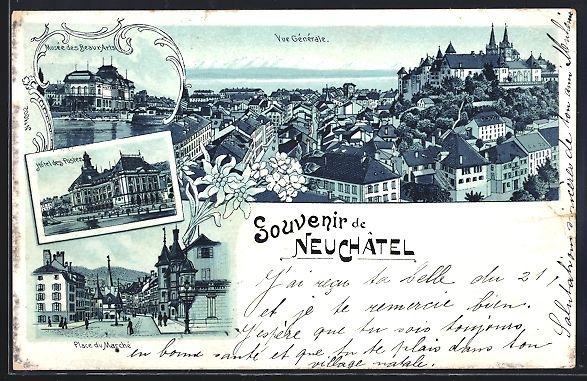 Musée des Beaux Arts
Vue Générale.
Hôtel des Postes
Place du Marché
Souvenir de
NEUCHÂTEL
J'ai reçu ta belle du 21,
et je te remercie bien.
J'espère que tu sois toujours,
en bonne santé et que tu te plais dans ton
village natale.
Salutations sincères de ton ami